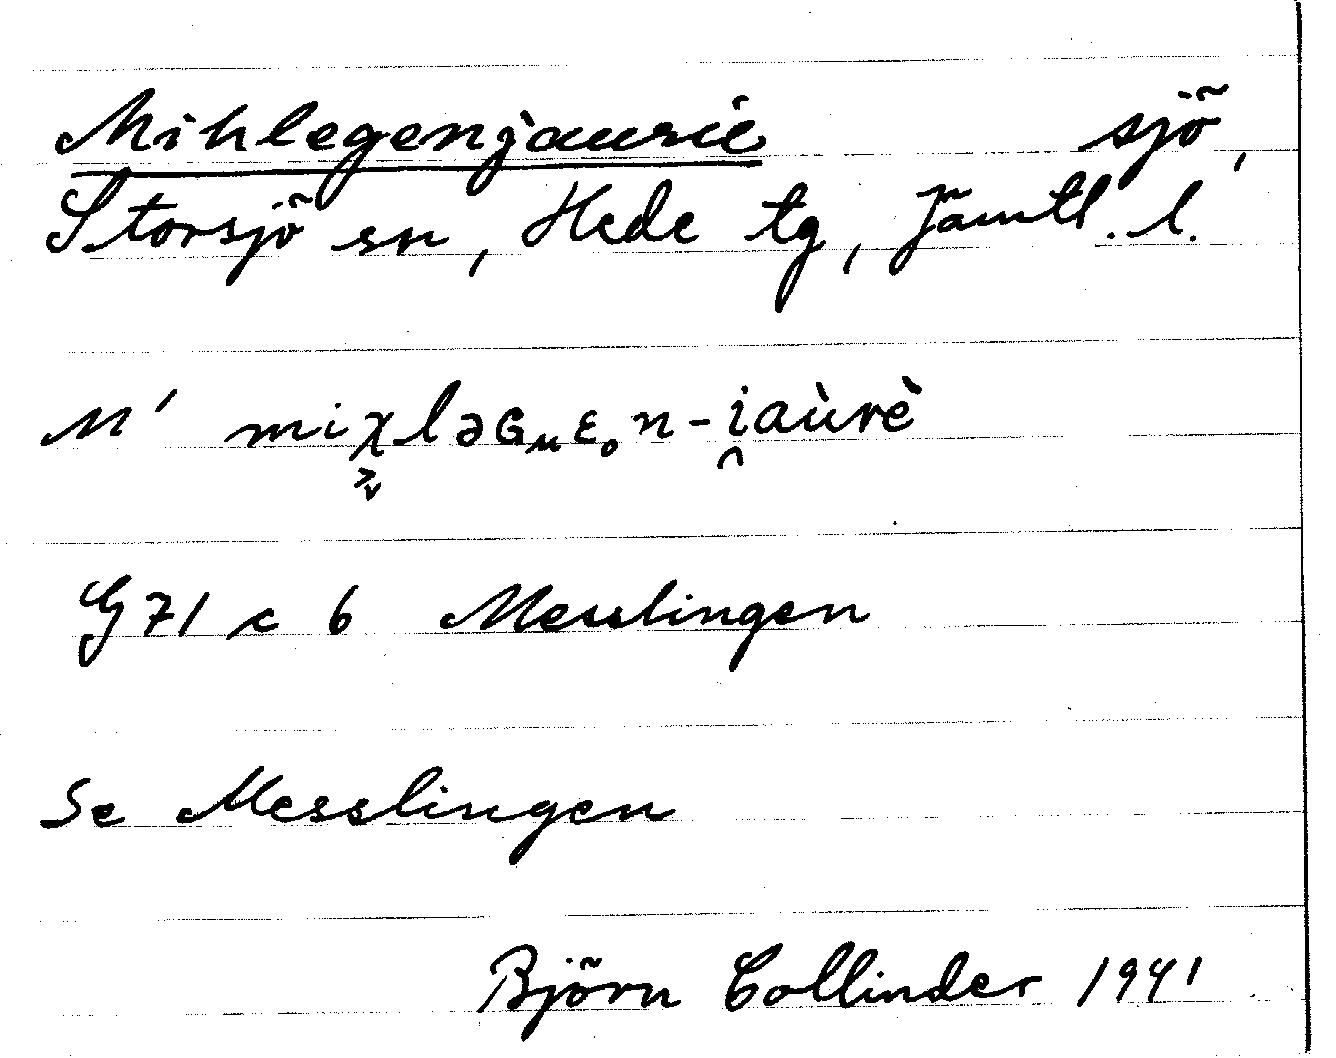 Mihlegenjaurie sjö,
Storsjö sn, Hede tg, Jämtl. l.
M' miχləɢᵤɛₒn-i̯aùrè
G 71 c 6 Messlingen
Se Messlingen
Björn Collinder 1941